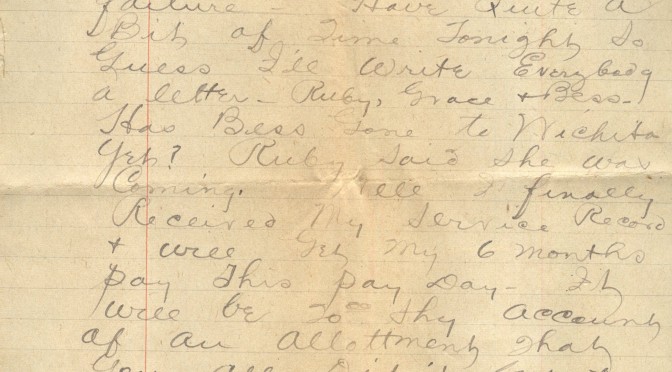 failure - Have Quite a
Bit of Time Tonight So
Guess I'll Write Everybody
a letter - Ruby, Grace + Bess -
Has Bess Gone to Wichita
Yet? Ruby Said She was
Coming. Well I finally
Received My Service Record
+ will Get My 6 months
Pay This Pay Day - It
will be to thy account
of an Allottment That
You all